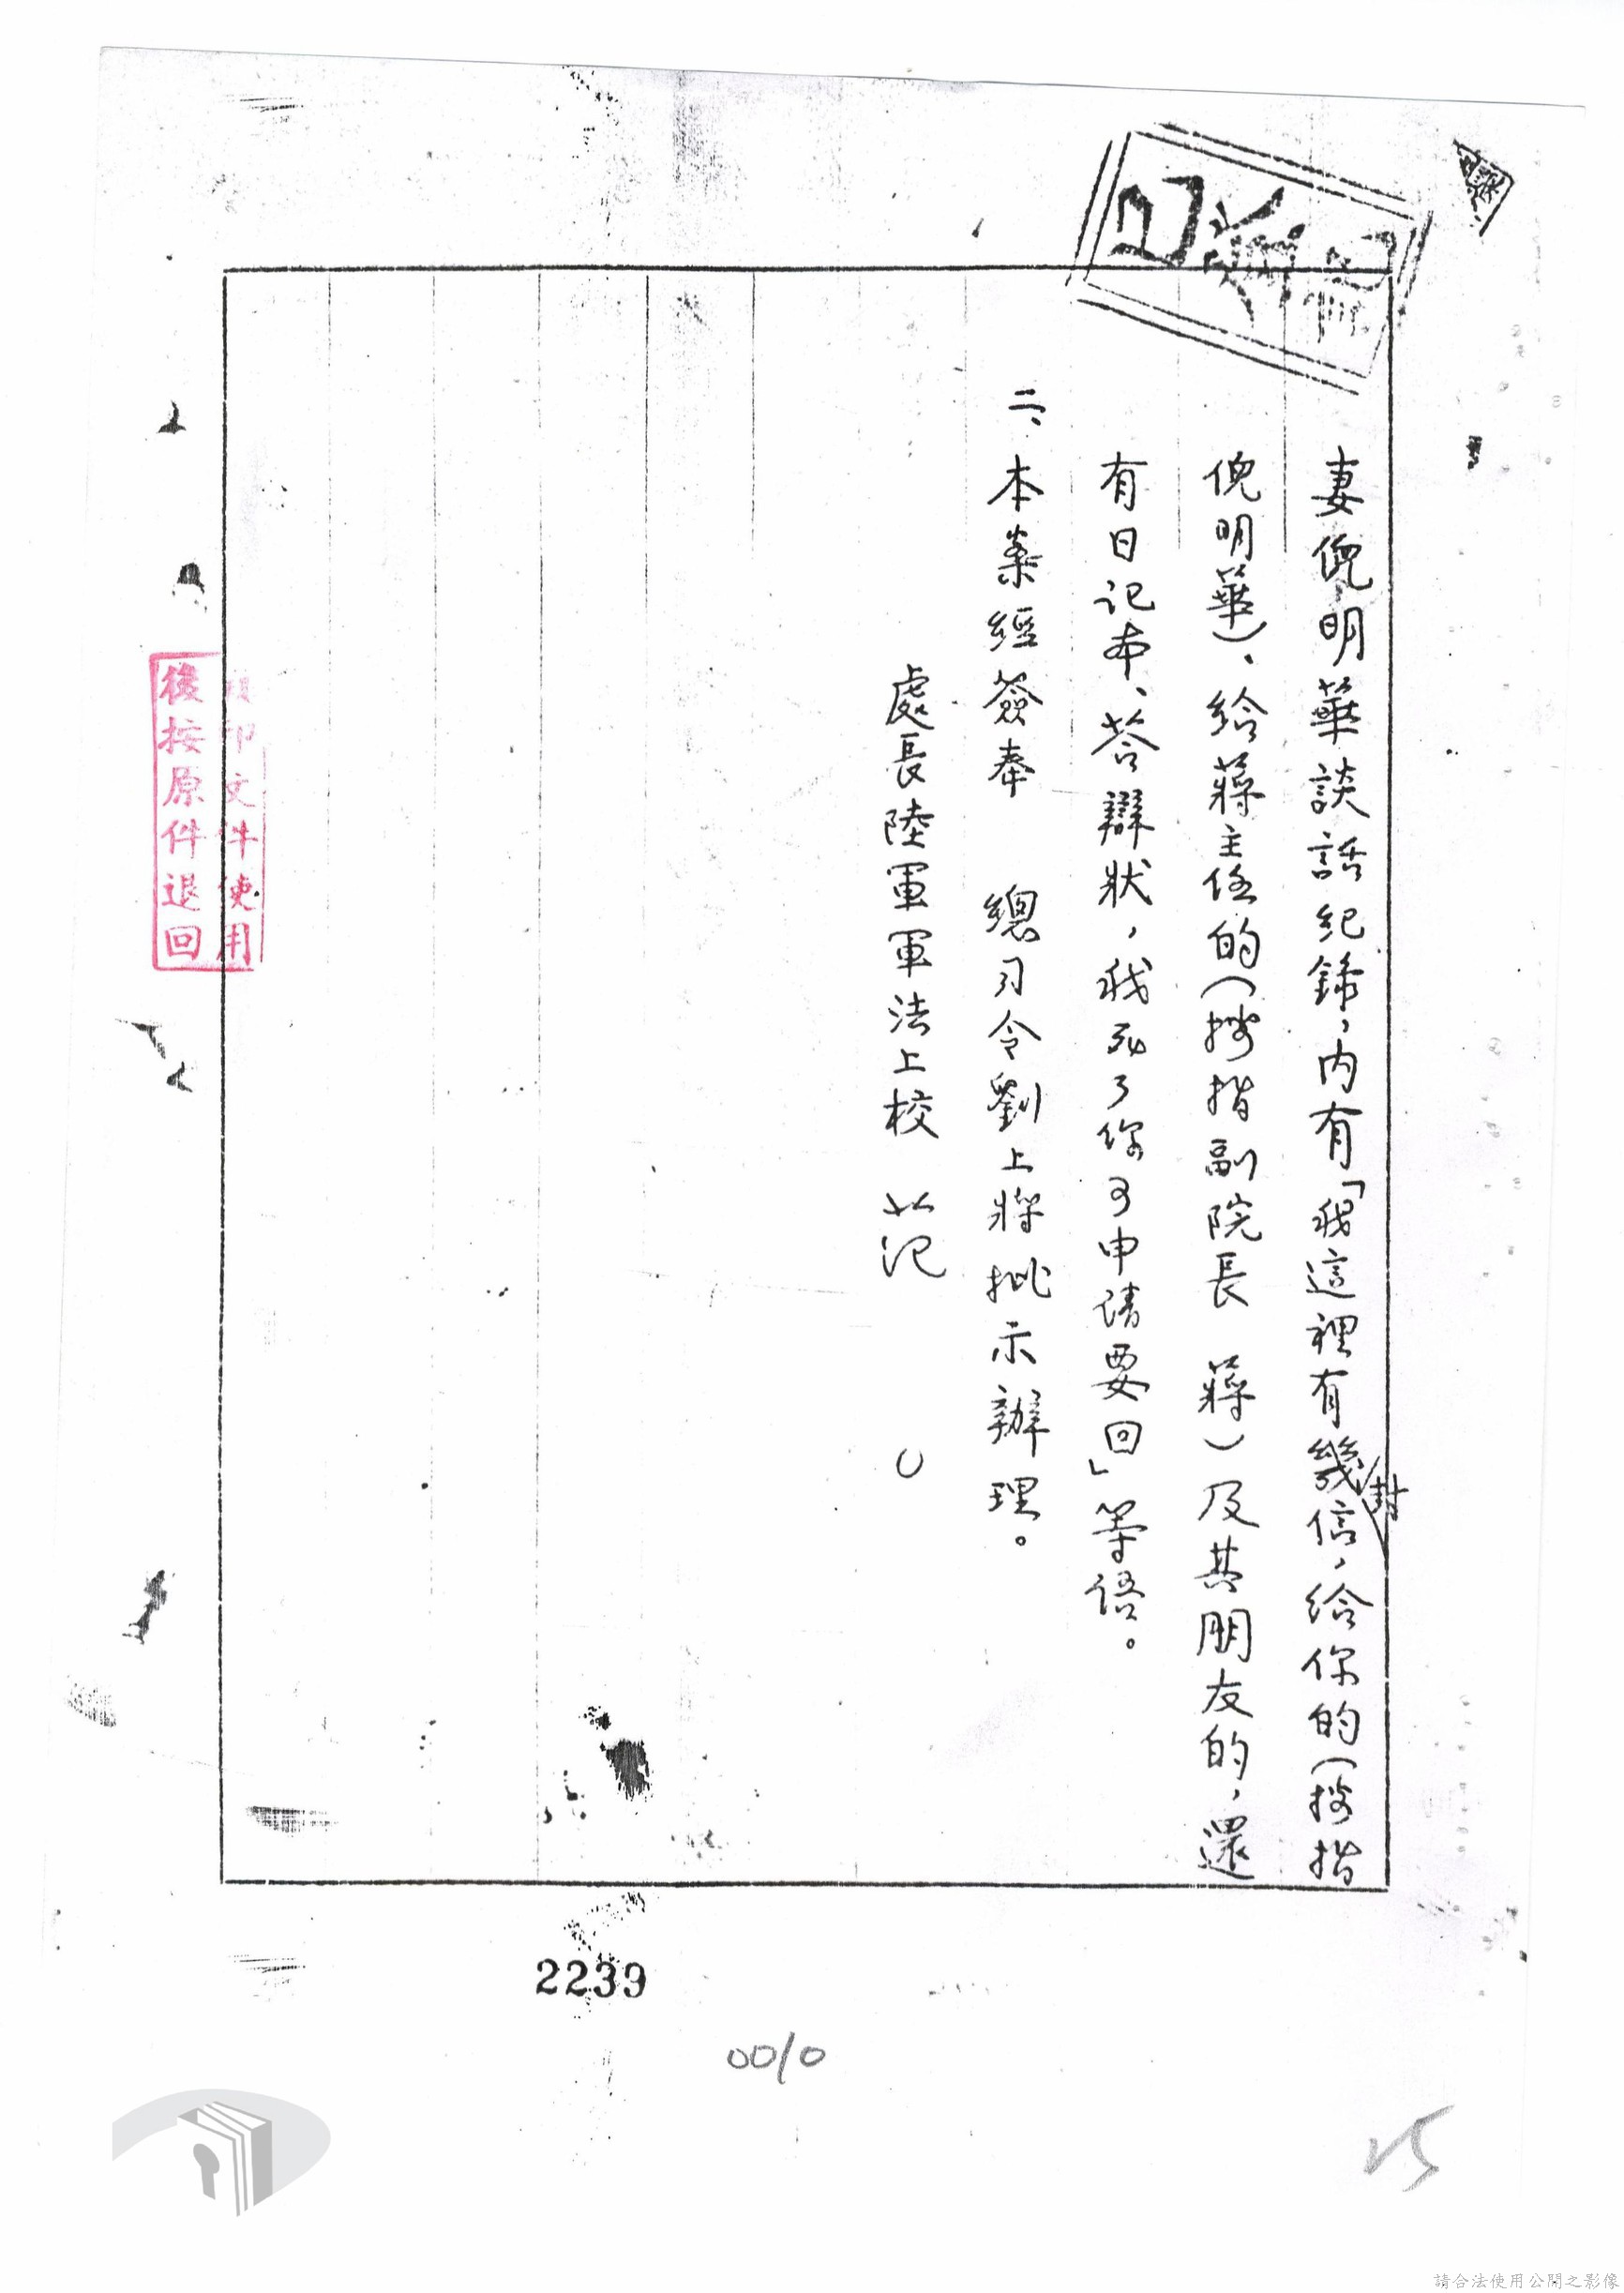 妻倪明華談話紀錄，內有「我這裡有幾封信，給你的（按指
倪明華）、給蔣主任的（按指副院長　蔣）及其朋友的，還
有日記本、答辯狀，我死了你可申請要回」等語。
二、本案經簽奉　總司令劉上將批示辦理。
處長陸軍軍法上校　范
印文件使用
後按原件退回
2239
0010
25
請合法使用公開之影像